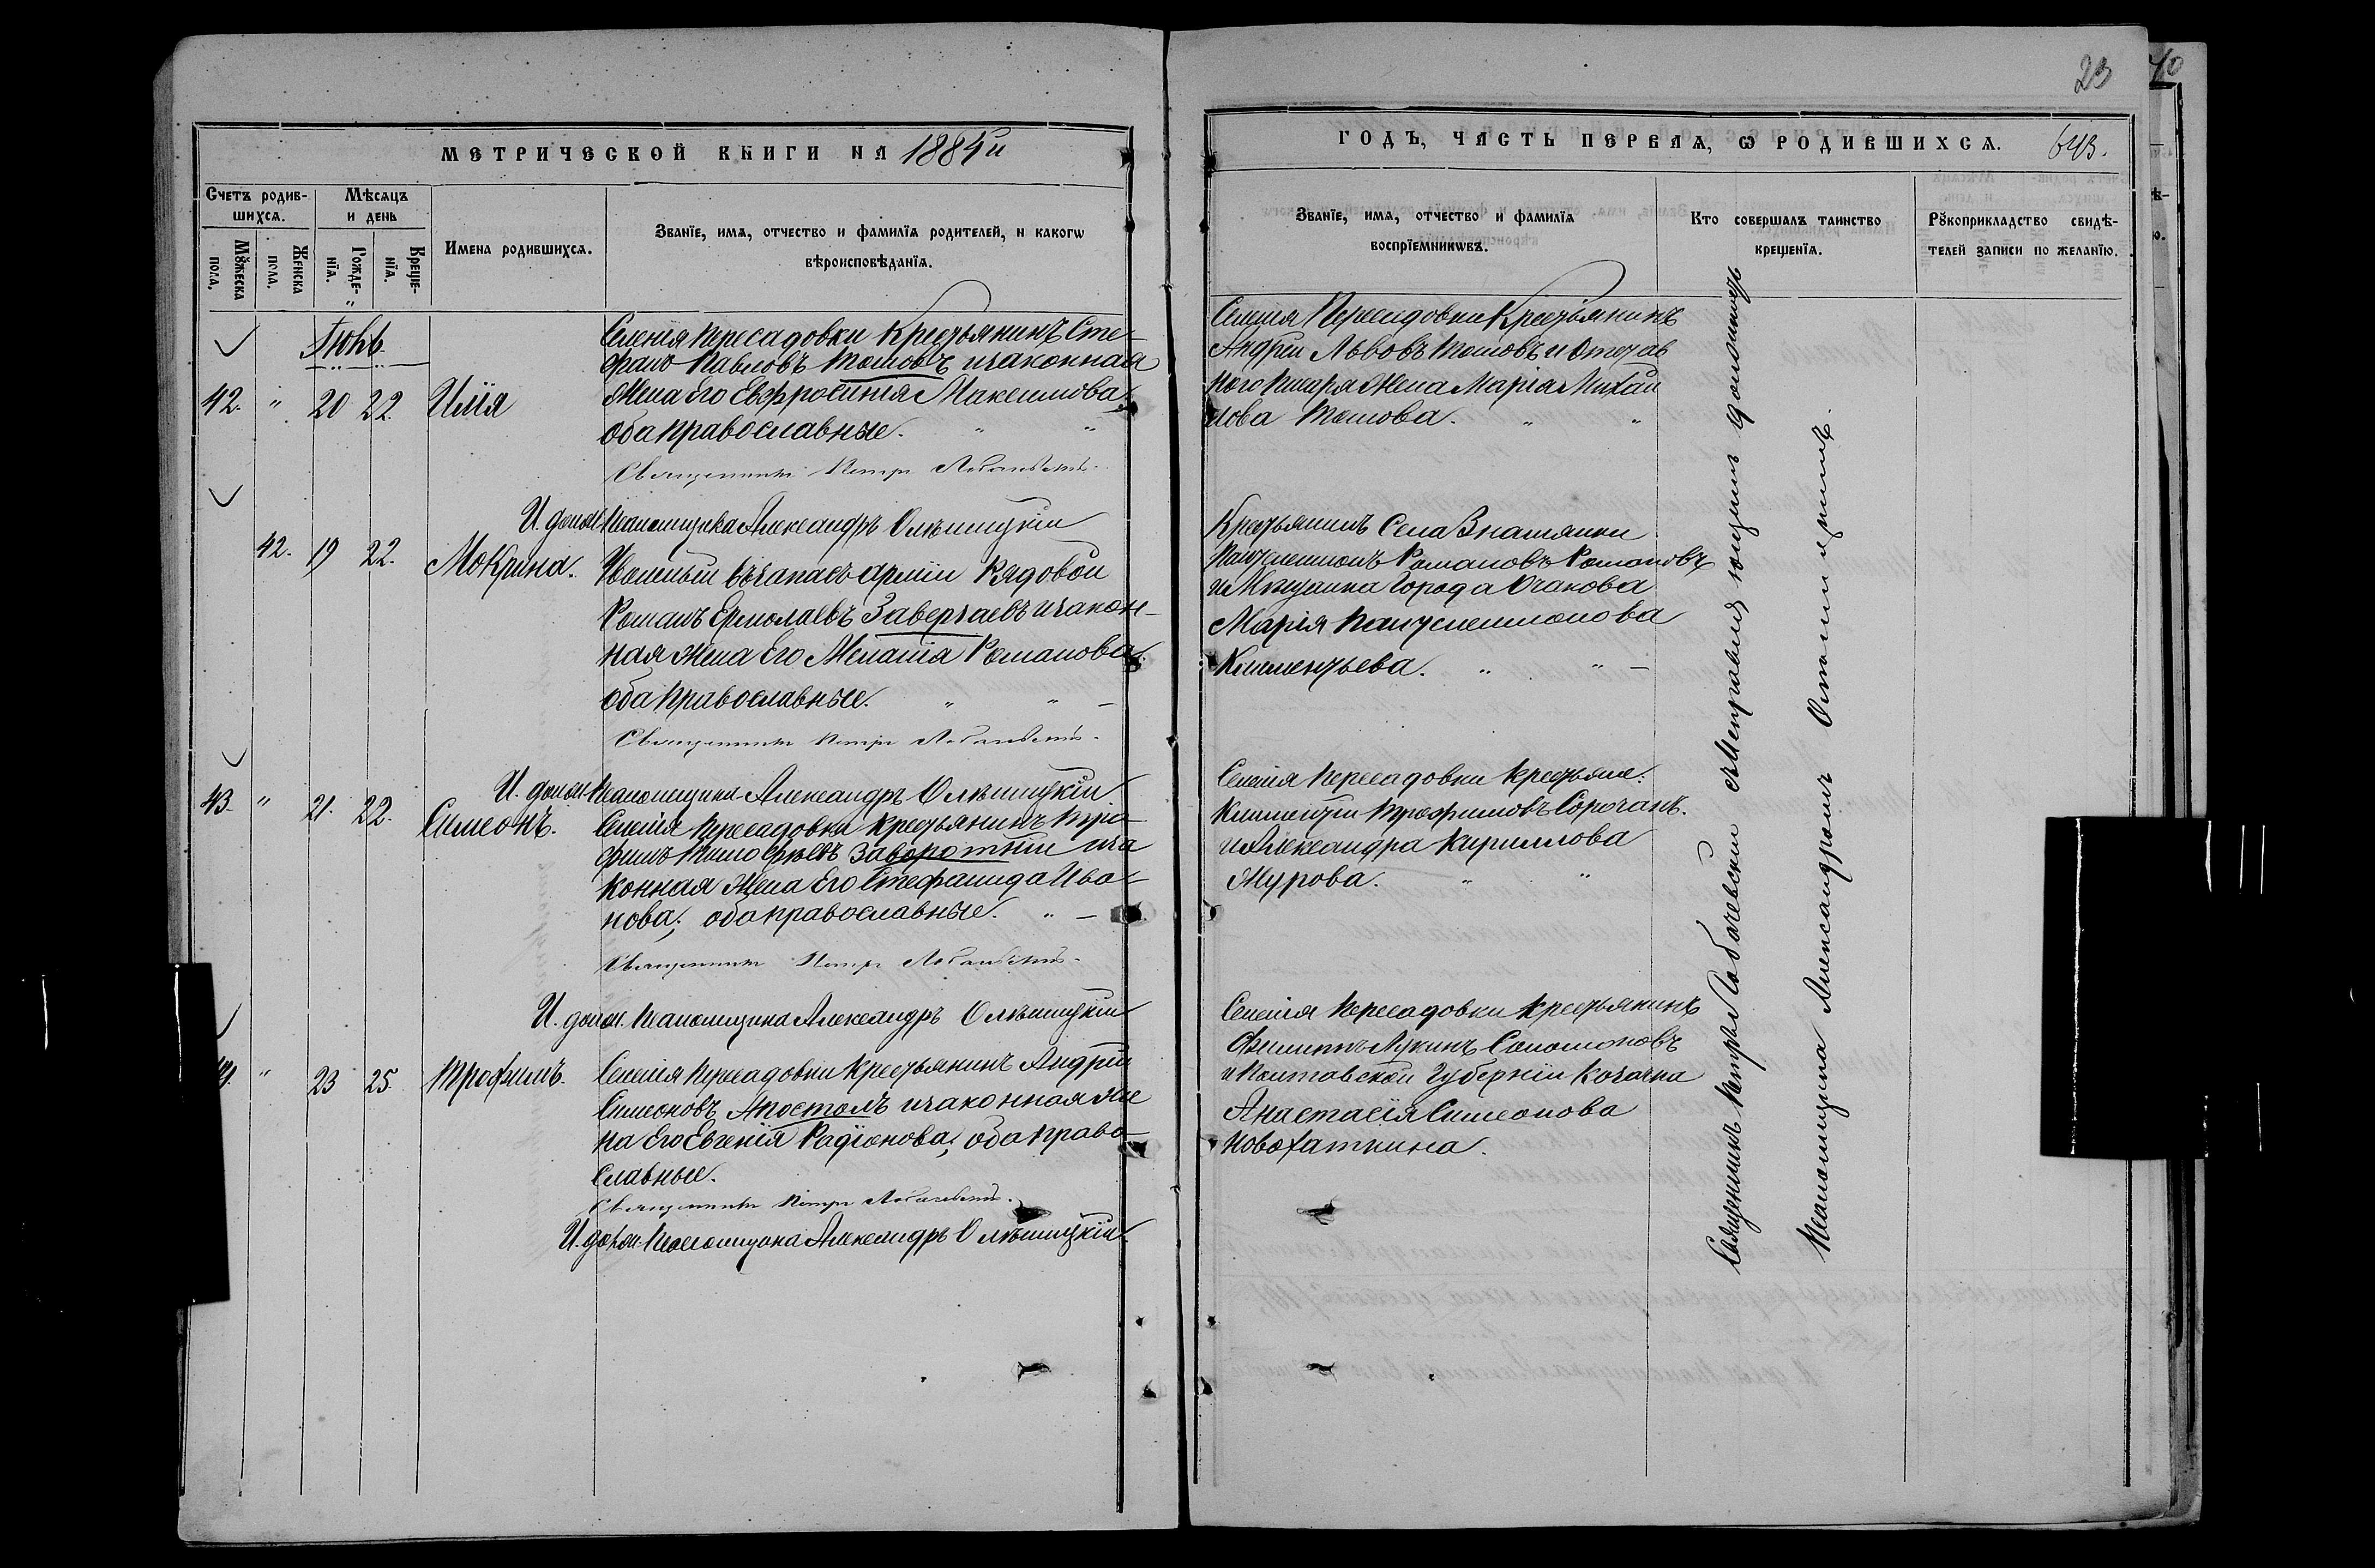 МЕТРИЧЕСКОЙ КНИГИ НА 1884й
Счетъ родив-
шихсѧ.
Мꙋжеска
пола,
Женска
пола.
Мѣсѧцъ
и день
Рожде-
нїѧ.
Креще-
нїѧ.
Имена родившихсѧ.
Званїе, имѧ, отчество и фамилїѧ родителей, и какогѡ
вѣроисповѣданїѧ.
Іюнь
42. " 20 22. Илія
Селенія Пересадовки Крестьянинъ Сте-
фанъ Павловъ Томовъ и законная
Жена Его Евфросинія Максимова,
оба православные. " "
Священникъ Петръ Лобачевскій.
И. долж. Псаломщика Александръ Олѣшицкій
42. 19 22. Мокрина.
Уволенный въ запасъ арміи Рядовой
Романъ Ермолаевъ Заверчаевъ и закон-
ная жена Его Меланія Романова,
оба православные. " " —
Священникъ Петръ Лобачевскій.
И. долж. Псаломщика Александръ Олѣшицкій
43. " 21. 22. Симеонъ.
Селенія Пересадовки крестьянинъ Тро-
фимъ Тимофѣевъ Заворотній и за
конная Жена Его Стефанида Ива-
нова; оба православные. " —
Священникъ Петръ Лобачевскій.
И. долж. Псаломщика Александръ Олѣшицкій
" 23 25. Трофимъ.
Селенія Пересадовки крестьянинъ Андрей
Симеоновъ Апостолъ и законная же
на Его Евгенія Радіонова; оба право-
славные.
Священникъ Петръ Лобачевскій.
И. долж. Псаломщика Александръ Олѣшицкій
23
40
ГОДЪ, ЧАСТЬ ПЕРВАѦ, Ѡ РОДИВШИХСѦ. 643.
Званїе, имѧ, отчество и фамилїѧ
воспрїемникѡвъ.
Кто совершалъ таинство
крещенїѧ.
Рꙋкоприкладство свидѣ-
телей записи по желанїю.
Селенія Пересадовки Крестьянинъ
Андрей Львовъ Томовъ и Отстав
ного Писаря Жена Марія Михай
лова Томова. " "
Крестьянинъ Села Знамянки
Пантелеимонъ Романовъ Романовъ
и Мещанка Города Очакова
Марія Пантелеимонова
Климентьева. " " —
Селенія Пересадовки крестьяне:
Климентій Трофимовъ Сорочанъ.
и Александра Кириллова
Мурова. " "
Селенія Пересадовки крестьянинъ
Филиппъ Лукинъ Соломоновъ
и Полтавской Губерніи Козачка
Анастасія Симеонова
Новохаткина.
Священникъ Петръ Лобачевскій съ исправляющимъ должность
Псаломщика Александромъ Олѣшицкимъ.